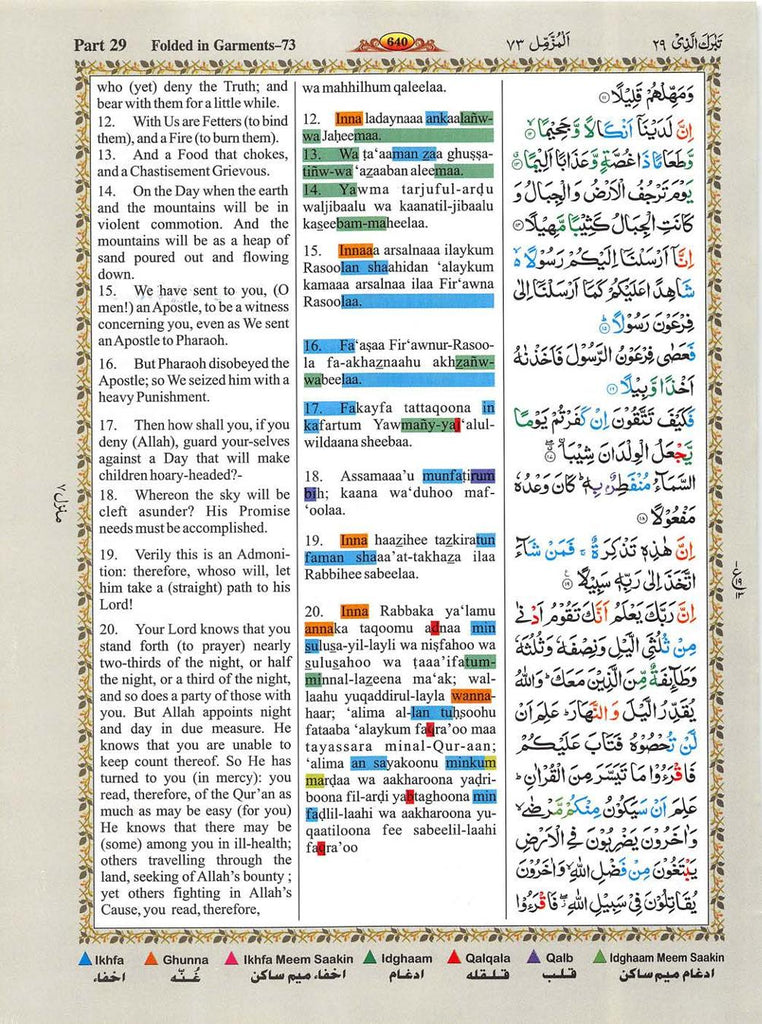 Part 29 Folded in Garments-73 640 اَلْمُزَّمِّل ٧٣ تَبٰرَكَ الَّذِیْ ٢٩
who (yet) deny the Truth; and
bear with them for a little while.
12. With Us are Fetters (to bind
them), and a Fire (to burn them).
13. And a Food that chokes,
and a Chastisement Grievous.
14. On the Day when the earth
and the mountains will be in
violent commotion. And the
mountains will be as a heap of
sand poured out and flowing
down.
15. We have sent to you, (O
men!) an Apostle, to be a witness
concerning you, even as We sent
an Apostle to Pharaoh.
16. But Pharaoh disobeyed the
Apostle; so We seized him with a
heavy Punishment.
17. Then how shall you, if you
deny (Allah), guard your-selves
against a Day that will make
children hoary-headed?-
18. Whereon the sky will be
cleft asunder? His Promise
needs must be accomplished.
19. Verily this is an Admoni-
tion: therefore, whoso will, let
him take a (straight) path to his
Lord!
20. Your Lord knows that you
stand forth (to prayer) nearly
two-thirds of the night, or half
the night, or a third of the night,
and so does a party of those with
you. But Allah appoints night
and day in due measure. He
knows that you are unable to
keep count thereof. So He has
turned to you (in mercy): you
read, therefore, of the Qur'an as
much as may be easy (for you)
He knows that there may be
(some) among you in ill-health;
others travelling through the
land, seeking of Allah's bounty ;
yet others fighting in Allah's
Cause, you read, therefore,
wa mahhilhum qaleelaa.
12. Inna ladaynaaa ankaalañw-
wa Jaḥeemaa.
13. Wa ṭa'aaman zaa ghuṣṣa-
tiñw-wa 'azaaban aleemaa.
14. Yawma tarjuful-arḍu
waljibaalu wa kaanatil-jibaalu
kaseebam-maheelaa.
15. Innaaa arsalnaaa ilaykum
Rasoolan shaahidan 'alaykum
kamaaa arsalnaa ilaa Fir'awna
Rasoolaa.
16. Fa'aṣaa Fir'awnur-Rasoo-
la fa-akhaznaahu akhzañw-
wabeelaa.
17. Fakayfa tattaqoona in
kafartum Yawmañy-yaj'alul-
wildaana sheebaa.
18. Assamaaa'u munfaṭirum
bih; kaana wa'duhoo maf-
'oolaa.
19. Inna haazihee tazkiratun
faman shaaa'at-takhaza ilaa
Rabbihee sabeelaa.
20. Inna Rabbaka ya'lamu
annaka taqoomu adnaa min
sulusa-yil-layli wa niṣfahoo wa
sulusahoo wa ṭaaa'ifatum-
minnal-lazeena ma'ak; wal-
laahu yuqaddirul-layla wanna-
haar; 'alima al-lan tuḥsoohu
fataaba 'alaykum faqra'oo maa
tayassara minal-Qur-aan;
'alima an sayakoonu minkum
marḍaa wa aakharoona yaḍri-
boona fil-arḍi yabtaghoona min
faḍlil-laahi wa aakharoona yu-
qaatiloona fee sabeelil-laahi
faqra'oo
وَمَهِّلْهُمْ قَلِيْلًا ۝١١
اِنَّ لَدَيْنَآ اَنْكَالًا وَّجَحِيْمًا ۝١٢
وَّطَعَامًا ذَا غُصَّةٍ وَّعَذَابًا اَلِيْمًا ۝١٣
يَوْمَ تَرْجُفُ الْاَرْضُ وَالْجِبَالُ وَ
كَانَتِ الْجِبَالُ كَثِيْبًا مَّهِيْلًا ۝١٤
اِنَّآ اَرْسَلْنَآ اِلَيْكُمْ رَسُوْلًا ۙ
شَاهِدًا عَلَيْكُمْ كَمَآ اَرْسَلْنَآ اِلٰى
فِرْعَوْنَ رَسُوْلًا ۝١٥
فَعَصٰى فِرْعَوْنُ الرَّسُوْلَ فَاَخَذْنٰهُ
اَخْذًا وَّبِيْلًا ۝١٦
فَكَيْفَ تَتَّقُوْنَ اِنْ كَفَرْتُمْ يَوْمًا
يَّجْعَلُ الْوِلْدَانَ شِيْبَا ۝١٧
السَّمَآءُ مُنْفَطِرٌۢ بِهٖ ؕ كَانَ وَعْدُهٗ
مَفْعُوْلًا ۝١٨
اِنَّ هٰذِهٖ تَذْكِرَةٌ ۚ فَمَنْ شَآءَ
اتَّخَذَ اِلٰى رَبِّهٖ سَبِيْلًا ۝١٩
اِنَّ رَبَّكَ يَعْلَمُ اَنَّكَ تَقُوْمُ اَدْنٰى
مِنْ ثُلُثَيِ الَّيْلِ وَنِصْفَهٗ وَثُلُثَهٗ
وَطَآئِفَةٌ مِّنَ الَّذِيْنَ مَعَكَ ؕ وَاللّٰهُ
يُقَدِّرُ الَّيْلَ وَالنَّهَارَ ؕ عَلِمَ اَنْ
لَّنْ تُحْصُوْهُ فَتَابَ عَلَيْكُمْ
فَاقْرَءُوْا مَا تَيَسَّرَ مِنَ الْقُرْاٰنِ ؕ
عَلِمَ اَنْ سَيَكُوْنُ مِنْكُمْ مَّرْضٰى ۙ
وَاٰخَرُوْنَ يَضْرِبُوْنَ فِي الْاَرْضِ
يَبْتَغُوْنَ مِنْ فَضْلِ اللّٰهِ ۙ وَاٰخَرُوْنَ
يُقَاتِلُوْنَ فِيْ سَبِيْلِ اللّٰهِ ۖ فَاقْرَءُوْا
منزل ٧
Ikhfa Ghunna Ikhfa Meem Saakin Idghaam Qalqala Qalb Idghaam Meem Saakin
اخفاء غُنّه اخفاء ميم ساكن ادغام قلقله قلب ادغام ميم ساكن